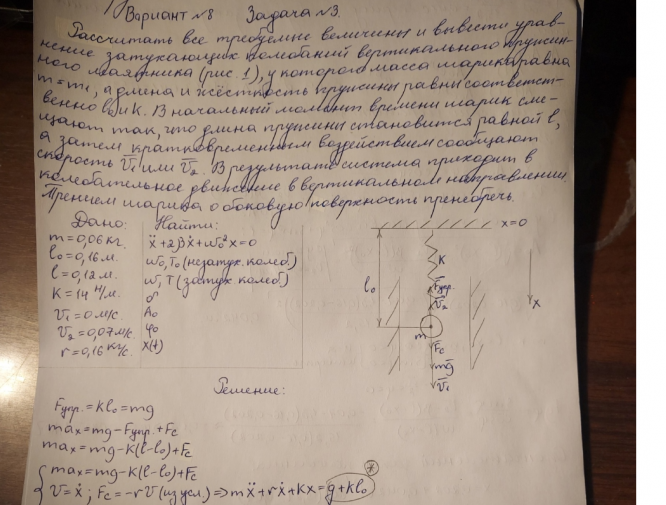 Вариант №8 Задача №3.
Рассчитать все требуемые величины и вывести урав-
нение затухающих колебаний вертикального пружин-
ного маятника (рис. 1), у которого масса шарика равна
m = m₁, а длина и жёсткость пружины равны соответст-
венно l₀ и K. В начальный момент времени шарик сме-
щают так, что длина пружины становится равной l,
а затем кратковременным воздействием сообщают
скорость V̄₁ или V̄₂. В результате система приходит в
колебательное движение в вертикальном направлении.
Трением шарика о боковую поверхность пренебречь.
Дано:
m = 0,06 кг.
l₀ = 0,16 м.
l = 0,12 м.
K = 14 Н/м.
V₁ = 0 м/с.
V₂ = 0,07 м/с.
r = 0,16 кг/с.
Найти:
ẍ + 2βẋ + ω₀²x = 0
ω₀, T₀ (незатух. колеб.)
ω, T (затух. колеб.)
δ
A₀
φ₀
x(t)
x=0
K
l₀
Fупр.
V̄₂
x
m
F̄c
mḡ
V̄₁
Решение:
Fупр. = Kl₀ = mg
maₓ = mg - Fупр. + Fc
maₓ = mg - K(l-l₀) + Fc
maₓ = mg - K(l-l₀) + Fc
V = ẋ; Fc = -rV (из усл.) ⇒ mẍ + rẋ + Kx = g + Kl₀ *